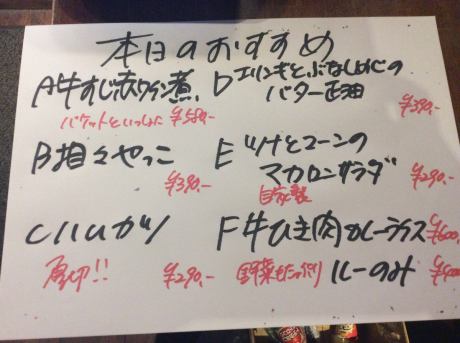 本日のおすすめ
A牛すじ赤ワイン煮
バケットといっしょに ¥580.-
B担々やっこ
¥390.-
Cハムカツ
厚切!! ¥290.-
Dエリンギとぶなしめじの
バター正油
¥390.-
Eツナとコーンの
マカロニサラダ
自家製 ¥290.-
F牛ひき肉カレーライス ¥600.-
野菜もたっぷり ルーのみ ¥400.-